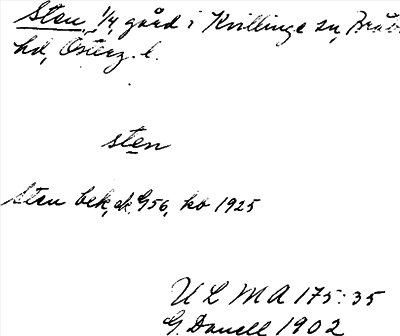 Sten, 1/4, gård i Kvillinge sn, Bråb.
hd, Österg. l.
sten
Sten bek, ek. G56, ko 1925
ULMA 175:35
G. Danell 1902